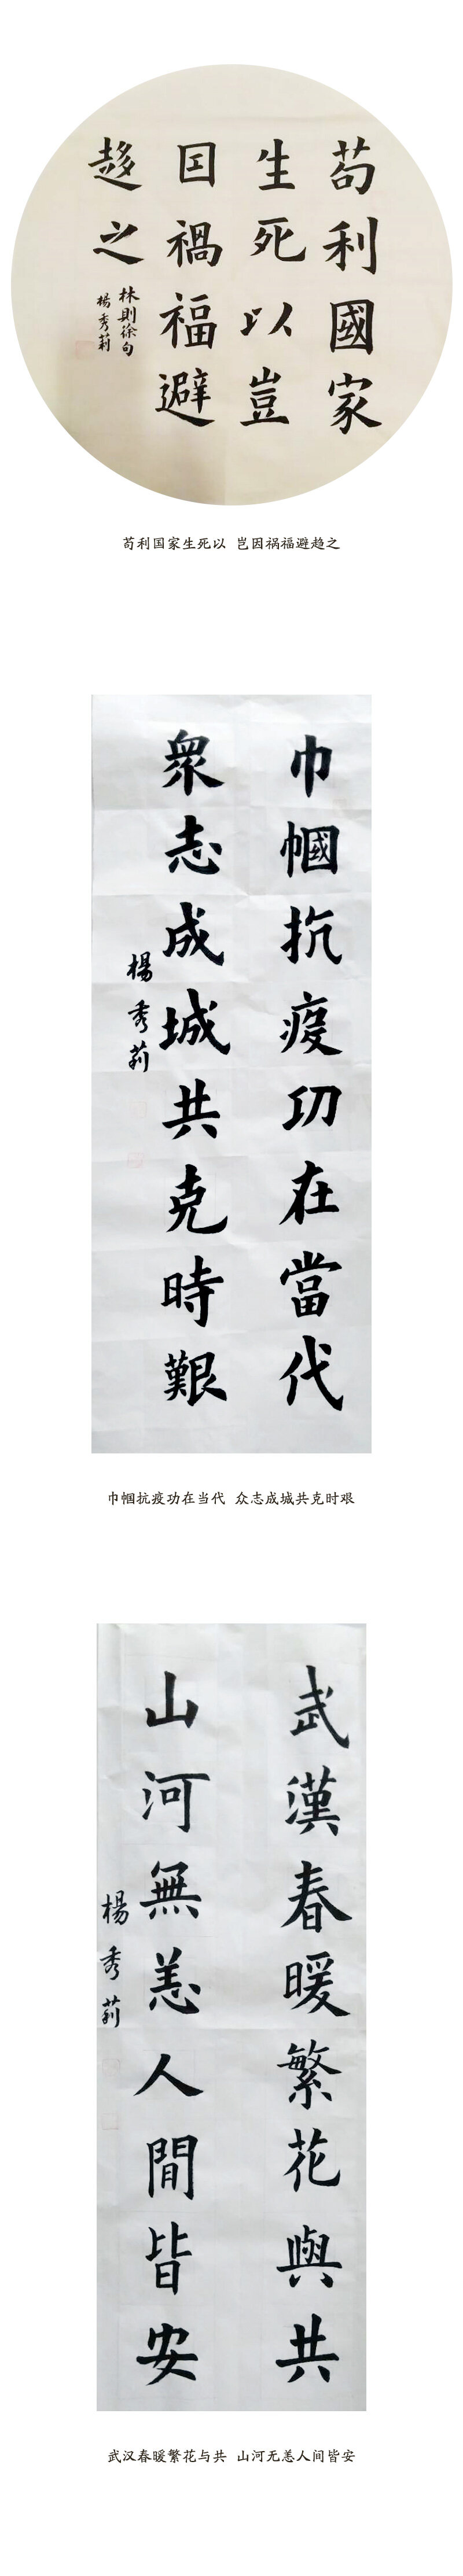 苟利國家
生死以豈
囙禍福避
趍之
林則徐句
楊秀莉
苟利国家生死以 岂因祸福避趋之
巾幗抗疫功在當代
衆志成城共克時艱
楊秀莉
巾帼抗疫功在当代 众志成城共克时艰
武漢春暖繁花與共
山河無恙人間皆安
楊秀莉
武汉春暖繁花与共 山河无恙人间皆安